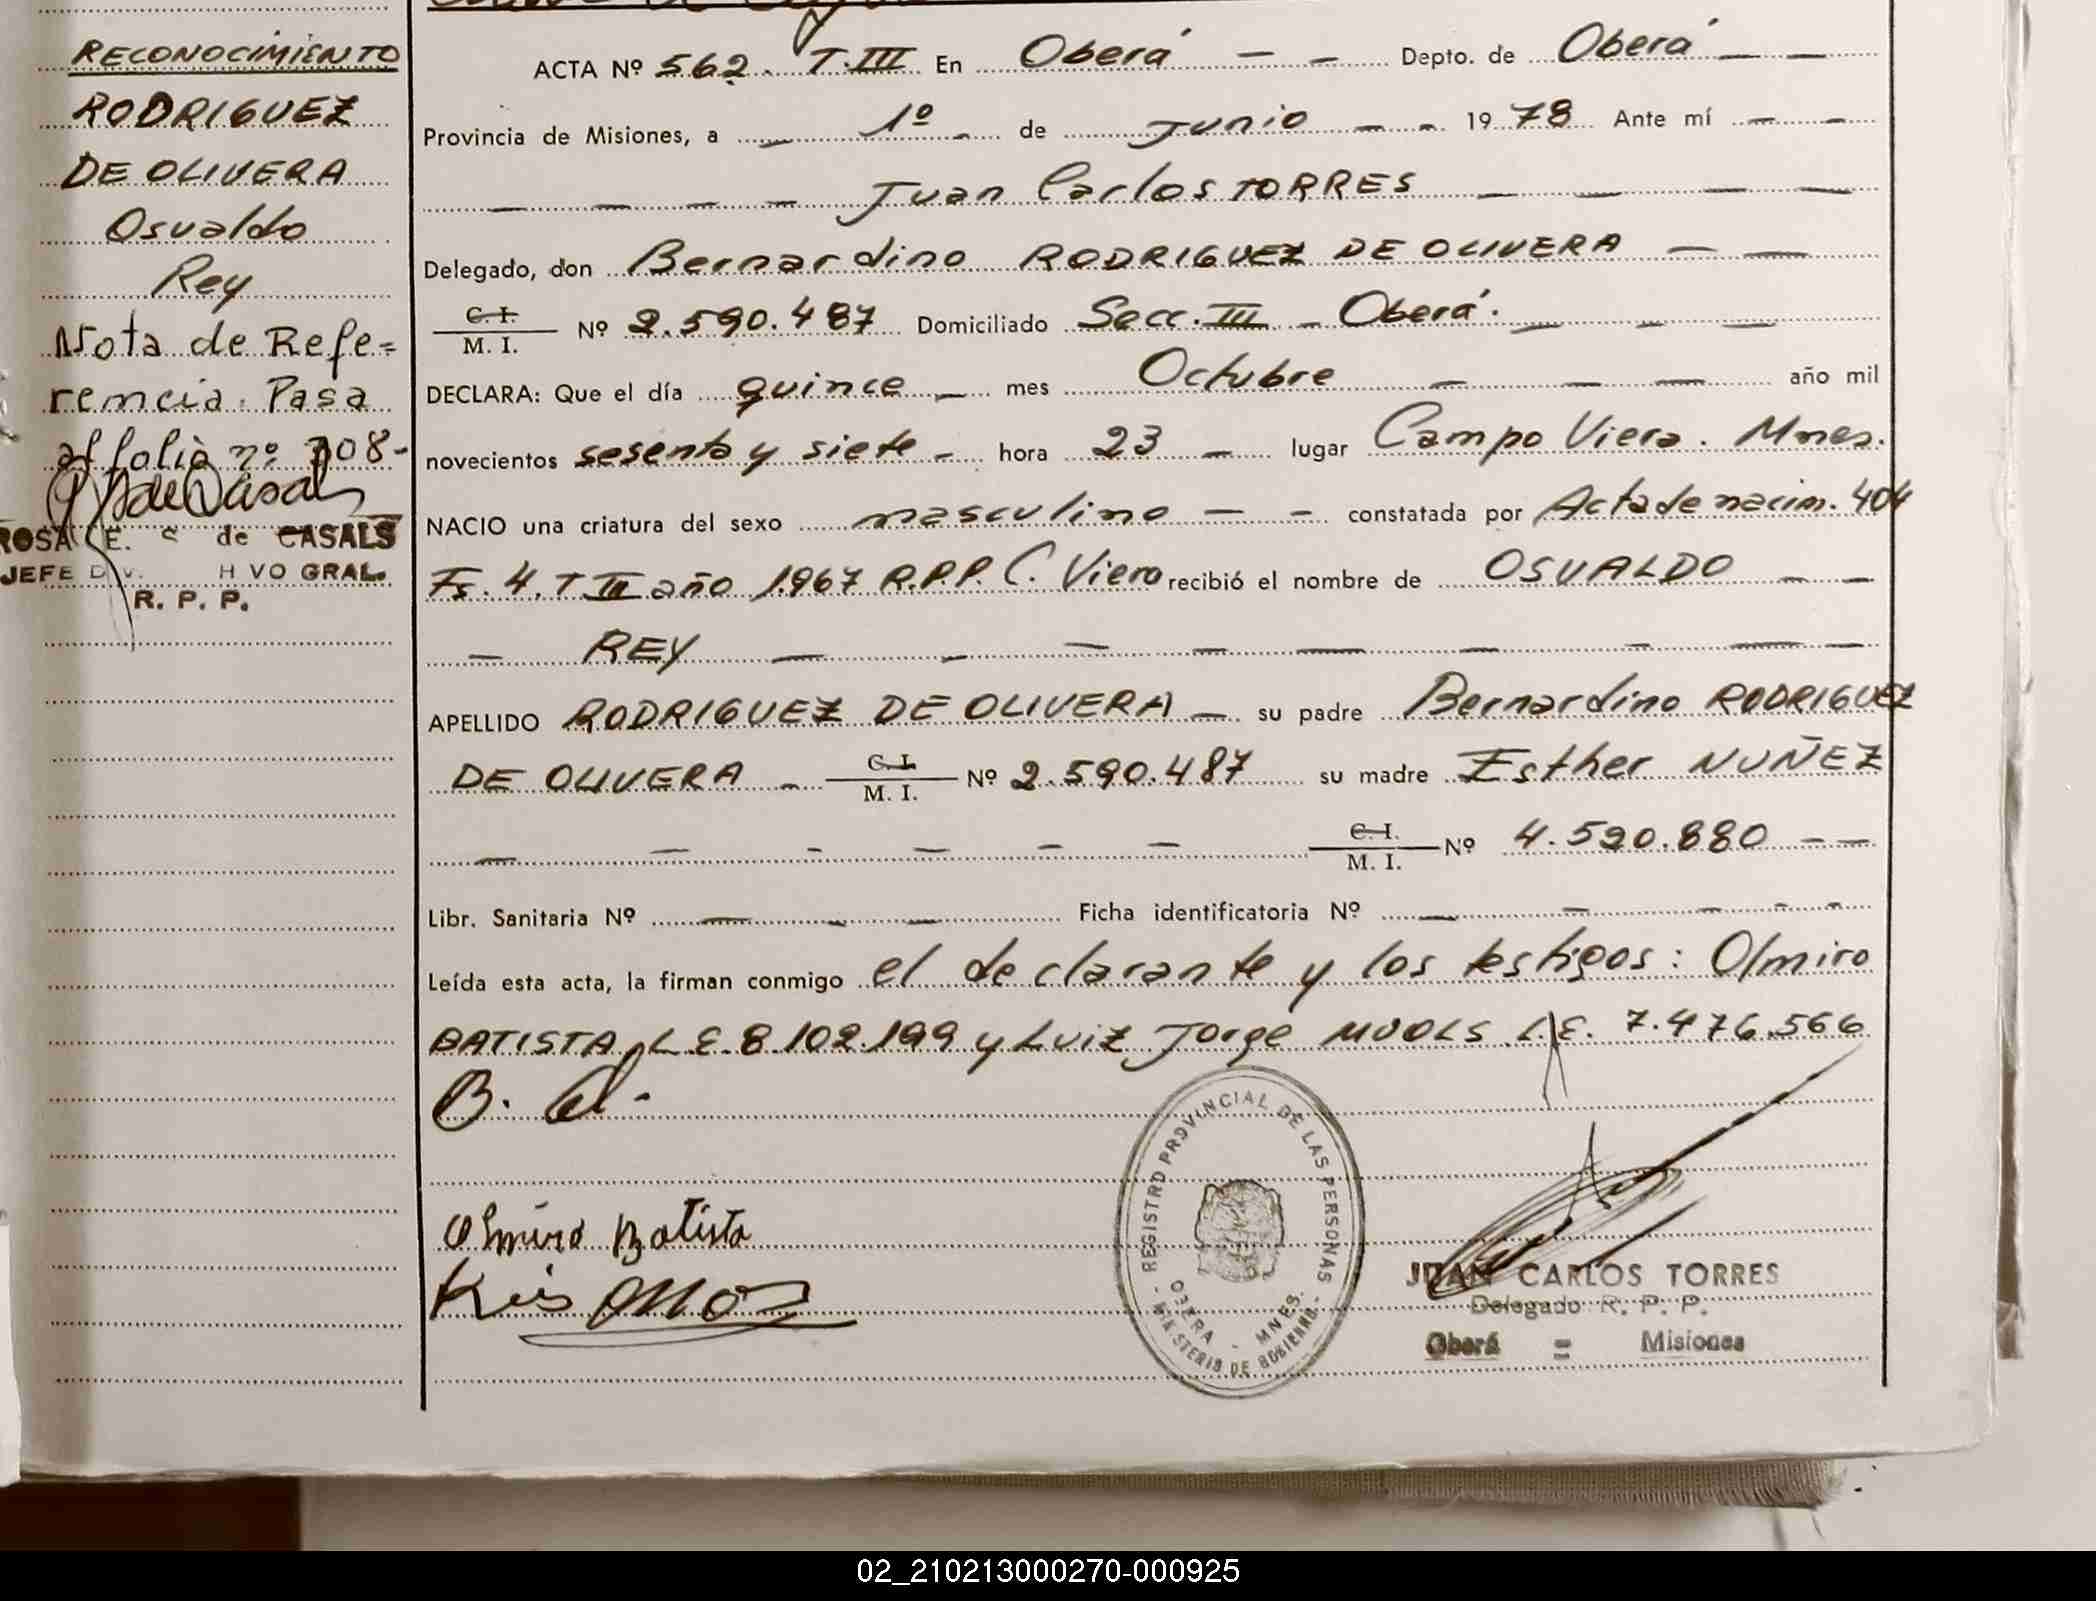 RECONOCIMIENTO
RODRIGUEZ
DE OLIVERA
Osvaldo
Rey
Nota de Refe=
rencia. Pasa
al folio nº 708-
ROSA E. de CASALS
JEFE DIV. H VO GRAL.
R. P. P.
ACTA Nº 562. T.III En Oberá — — Depto. de Oberá — —
Provincia de Misiones, a — 1º - de Junio — - 1978 Ante mí — —
— — — — Juan Carlos TORRES — — — —
Delegado, don Bernardino RODRIGUEZ DE OLIVERA — —
C. I.
M. I. Nº 2.590.487 Domiciliado Secc. III - Oberá. — — —
DECLARA: Que el día quince — mes Octubre — — — año mil
novecientos sesenta y siete - hora 23 — lugar Campo Viera. Mnes.
NACIO una criatura del sexo masculino — - constatada por Acta de nacim. 404
Fs. 4. T. III año 1.967 R.P.P. C. Viera recibió el nombre de OSVALDO — —
— REY — - — — — — - — —
APELLIDO RODRIGUEZ DE OLIVERA — su padre Bernardino RODRIGUEZ
DE OLIVERA - C. I. M. I. Nº 2.590.487 su madre Esther NUÑEZ
— — - — - — C. I. M. I. Nº 4.590.880 — —
Libr. Sanitaria Nº — - — Ficha identificatoria Nº — - - - -
Leída esta acta, la firman conmigo el declarante y los testigos: Olmiro
BATISTA, L.E. 8.102.199 y Luiz Jorge MUOLS L.E. 7.476.566
Olmiro Batista
REGISTRO PROVINCIAL DE LAS PERSONAS
OBERA - MNES.
- MINISTERIO DE GOBIERNO -
JUAN CARLOS TORRES
Delegado R. P. P.
Oberá = Misiones
02_210213000270-000925